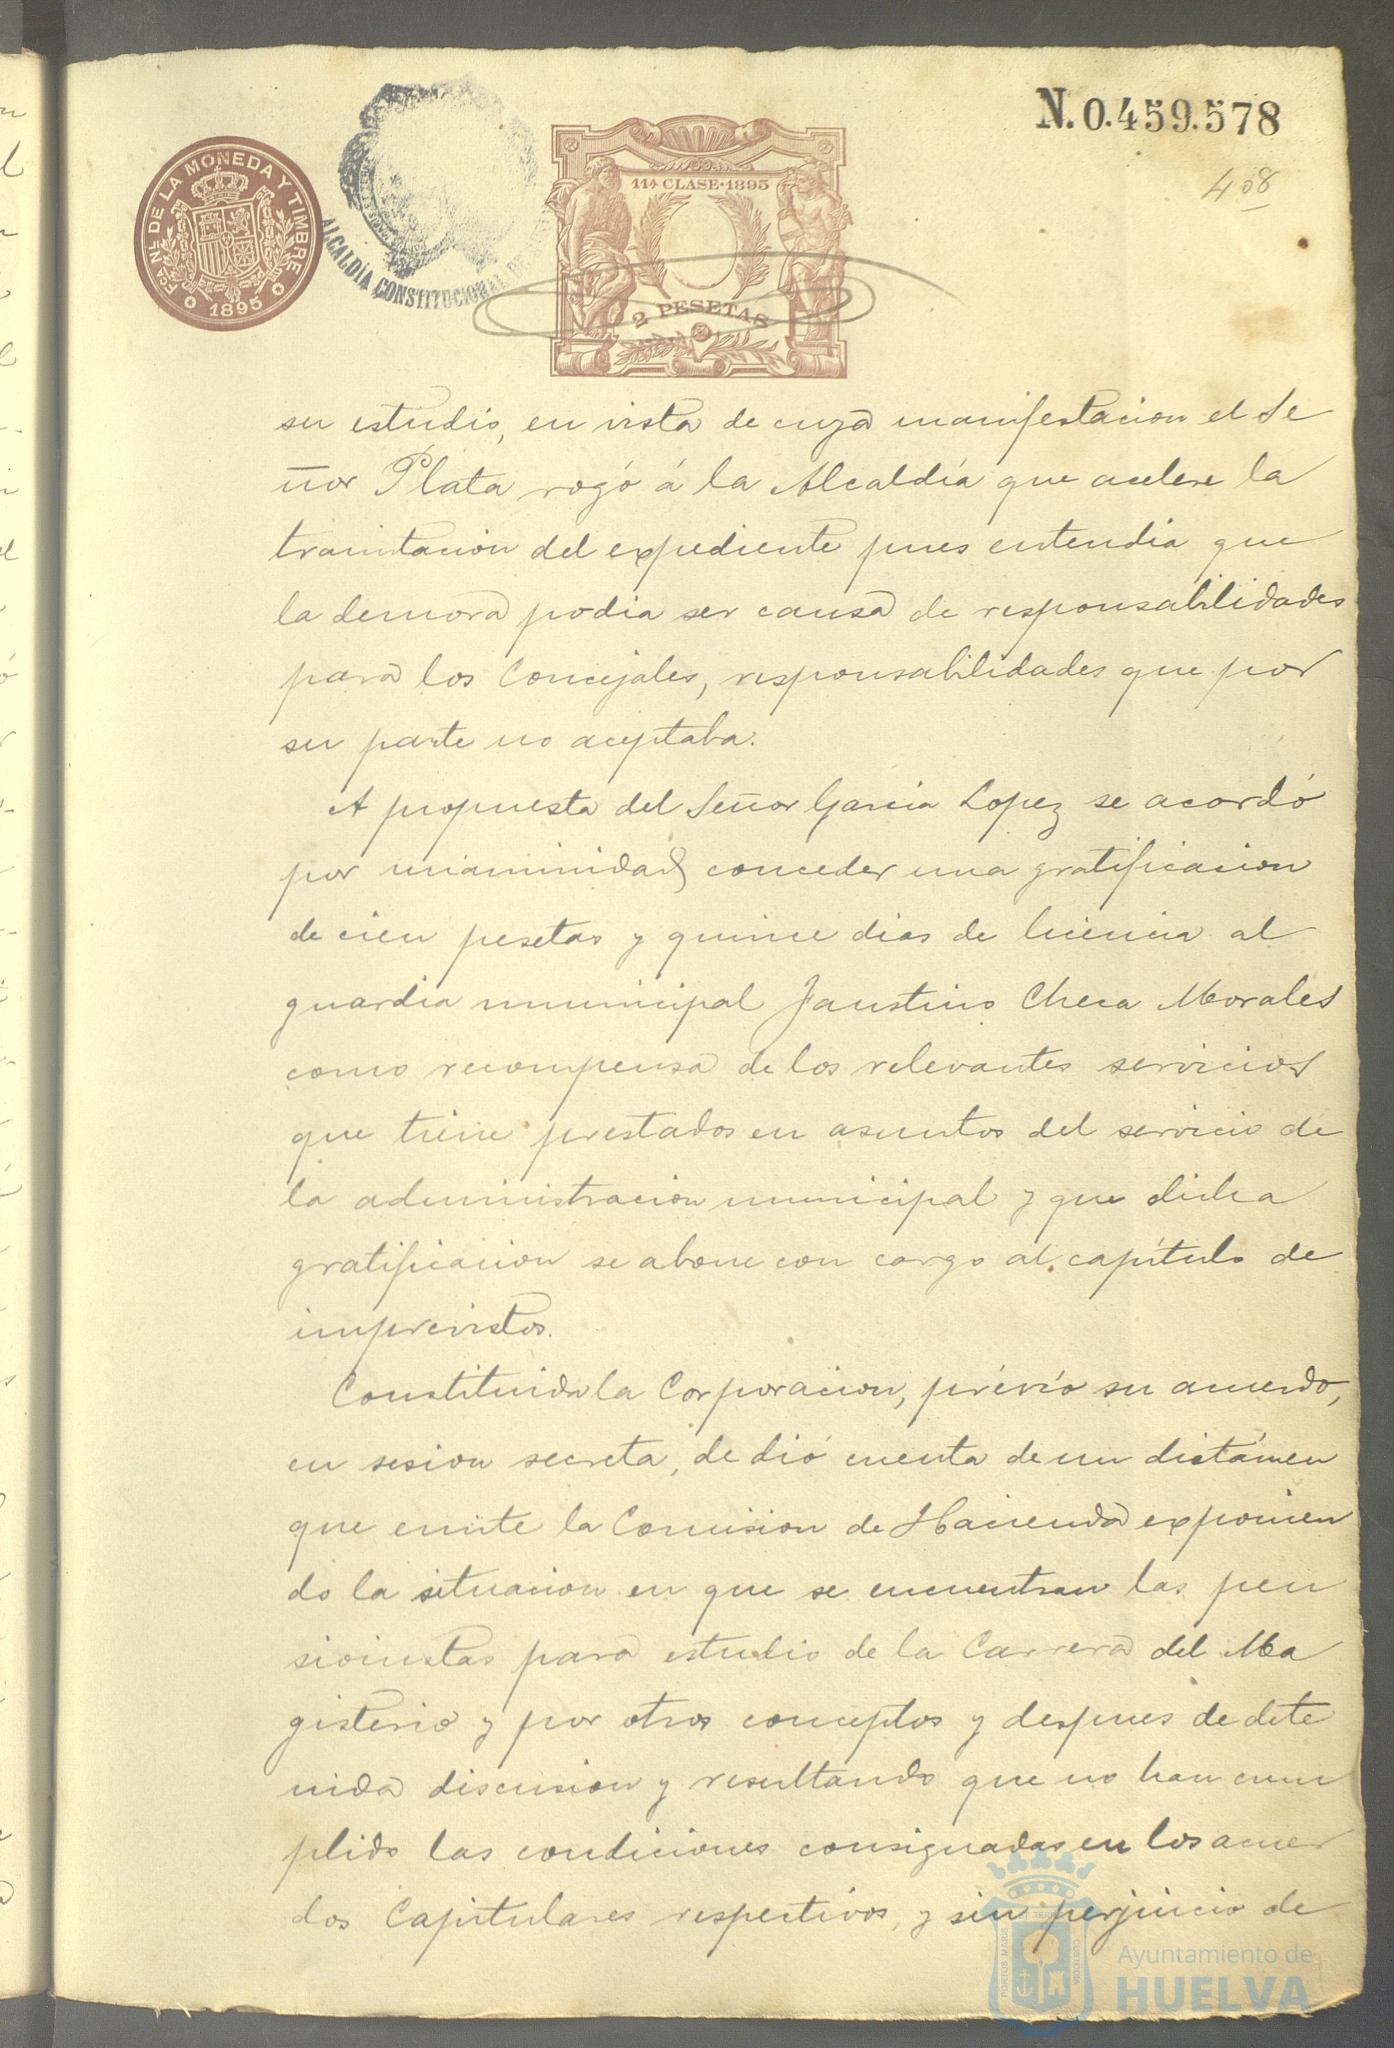 N. 0.459.578
408
FCA NL DE LA MONEDA Y TIMBRE
1895
ALCALDÍA CONSTITUCIONAL DE
11ª CLASE·1895
2 PESETAS
su estudio, en vista de cuya manifestacion el Se
ñor Plata rogó á la Alcaldía que acelere la
tramitacion del expediente pues entendia que
la demora podia ser causa de responsabilidades
para los Concejales, responsabilidades que por
su parte no aceptaba.
A propuesta del Señor Garcia Lopez se acordó
por unaminidad conceder una gratificacion
de cien pesetas y quince dias de licencia al
guardia municipal Faustino Checa Morales
como recompensa de los relevantes servicios
que tiene prestados en asuntos del servicio de
la administracion municipal y que dicha
gratificacion se abone con cargo al capítulo de
imprevistos.
Constituida la Corporacion, prévio su acuerdo,
en sesion secreta, de dió cuenta de un dictámen
que emite la Comision de Hacienda exponien
do la situacion en que se encuentran las pen
sionistas para estudio de la Carrera del Ma
gisterio y por otros conceptos y despues de dete
nida discusion y resultando que no han cum
plido las condiciones consignadas en los acuer
dos Capitulares respectivos, y sin perjuicio de
PORTUS MARIS ET TERRAE CUSTODIA
Ayuntamiento de
HUELVA